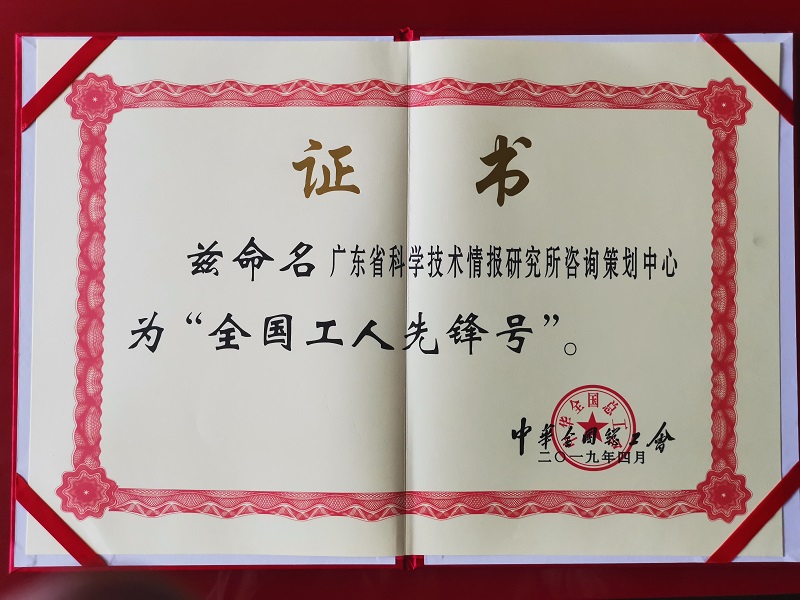 证 书
兹命名广东省科学技术情报研究所咨询策划中心
为“全国工人先锋号”。
中华全国总工会
中華全國總工會
二〇一九年四月